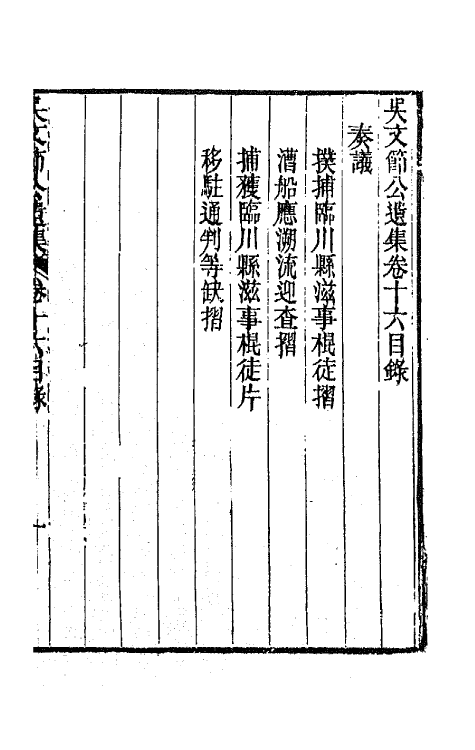 吳文節公遺集卷十六目錄
奏議
撲捕臨川縣滋事棍徒摺
漕船應溯流迎查摺
捕獲臨川縣滋事棍徒片
移駐通判等缺摺
吳文節公遺集 卷十六目錄 一